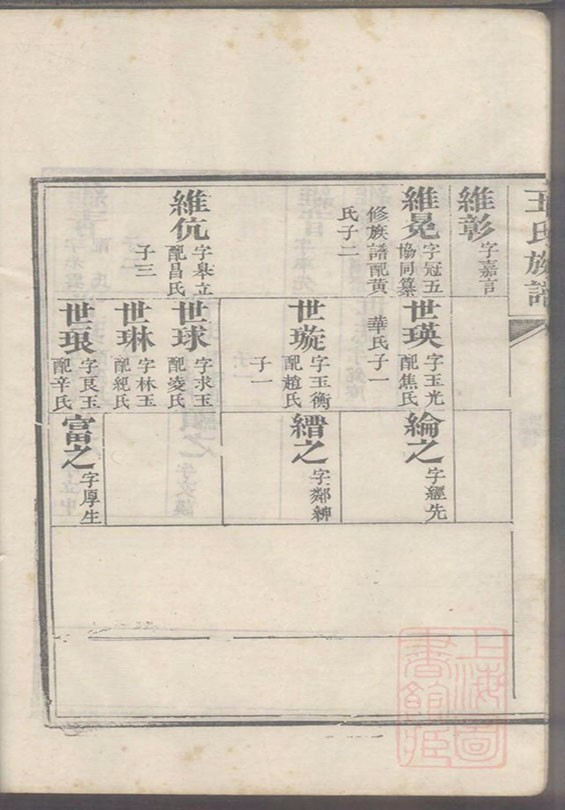 王氏族譜
維彰
字嘉言
維冕
字冠五
協同纂
修族譜配黃
氏子二
維伉
字皋立
配昌氏
子三
世瑛
字玉光
配焦氏
華氏子一
世璇
字玉衡
配趙氏
子一
世球
字求玉
配凌氏
世琳
字林玉
配倪氏
世琅
字良玉
配辛氏
綸之
字經先
縉之
字鄰紳
富之
字厚生
上海圖
書館藏